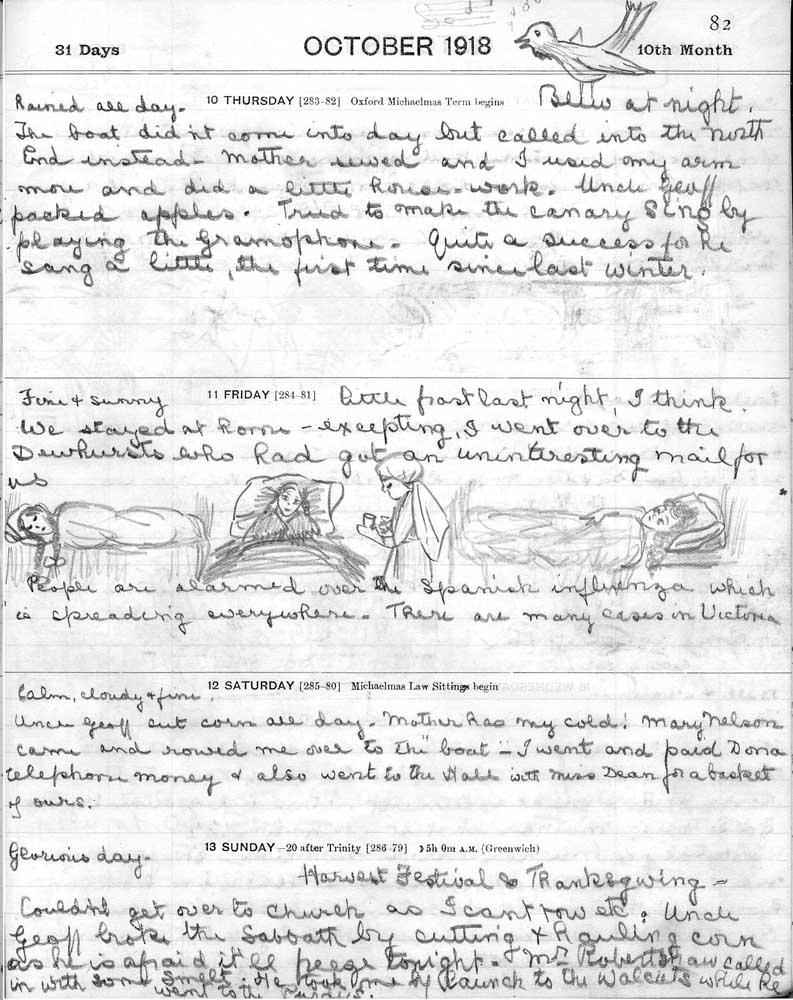 82
31 Days OCTOBER 1918 10th Month
Rained all day. 10 THURSDAY [283-82] Oxford Michaelmas Term begins Blew at night.
The boat didn't come into day but called into the North
End instead - Mother sewed and I used my arm
more and did a little house-work. Uncle Geoff
packed apples. Tried to make the canary sing by
playing the Gramophone. Quite a success for he
sang a little, the first time since last winter.
Fine & sunny 11 FRIDAY [284-81] little frost last night, I think.
We stayed at home - excepting, I went over to the
Dewhursts who had got an uninteresting mail for
us
People are alarmed over the Spanish influenza which
is spreading everywhere. There are many cases in Victoria
Calm, cloudy & fine. 12 SATURDAY [285-80] Michaelmas Law Sittings begin
Uncle Geoff cut corn all day. Mother has my cold! Mary Nelson
came and rowed me over to the "boat" - I went and paid Dona
telephone money & also went to the Hall with Miss Dean for a basket
of ours.
13 SUNDAY—20 after Trinity [286-79] 5h 0m A.M. (Greenwich)
Glorious day.
Harvest Festival & Thanksgiving -
Couldn't get over to church as I can't row etc. Uncle
Geoff broke the Sabbath by cutting & hauling corn
as he is afraid it'll freeze tonight. Mr Robertshaw called
in with some smelt. He took me by launch to the Walcots while he
went to the